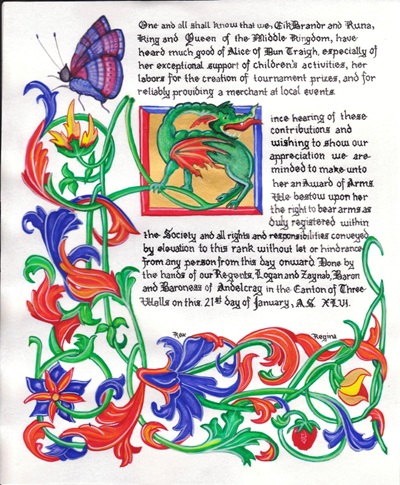 One and all shall know that we, EikBrandr and Runa,
King and Queen of the Middle Kingdom, have
heard much good of Alice of Dun Traigh, especially of
her exceptional support of children's activities, her
labors for the creation of tournament prizes, and for
reliably providing a merchant at local events.
ince hearing of these
contributions and
wishing to show our
appreciation we are
minded to make unto
her an Award of Arms.
We bestow upon her
the right to bear arms as
duly registered within
the Society and all rights and responsibilities conveyed
by elevation to this rank without let or hindrance
from any person from this day onward. Done by
the hands of our Regents, Logan and Zaynab, Baron
and Baroness of Andelcrag in the Canton of Three
Walls on this 21st day of January, A.S. XLVI.
Rex Regina